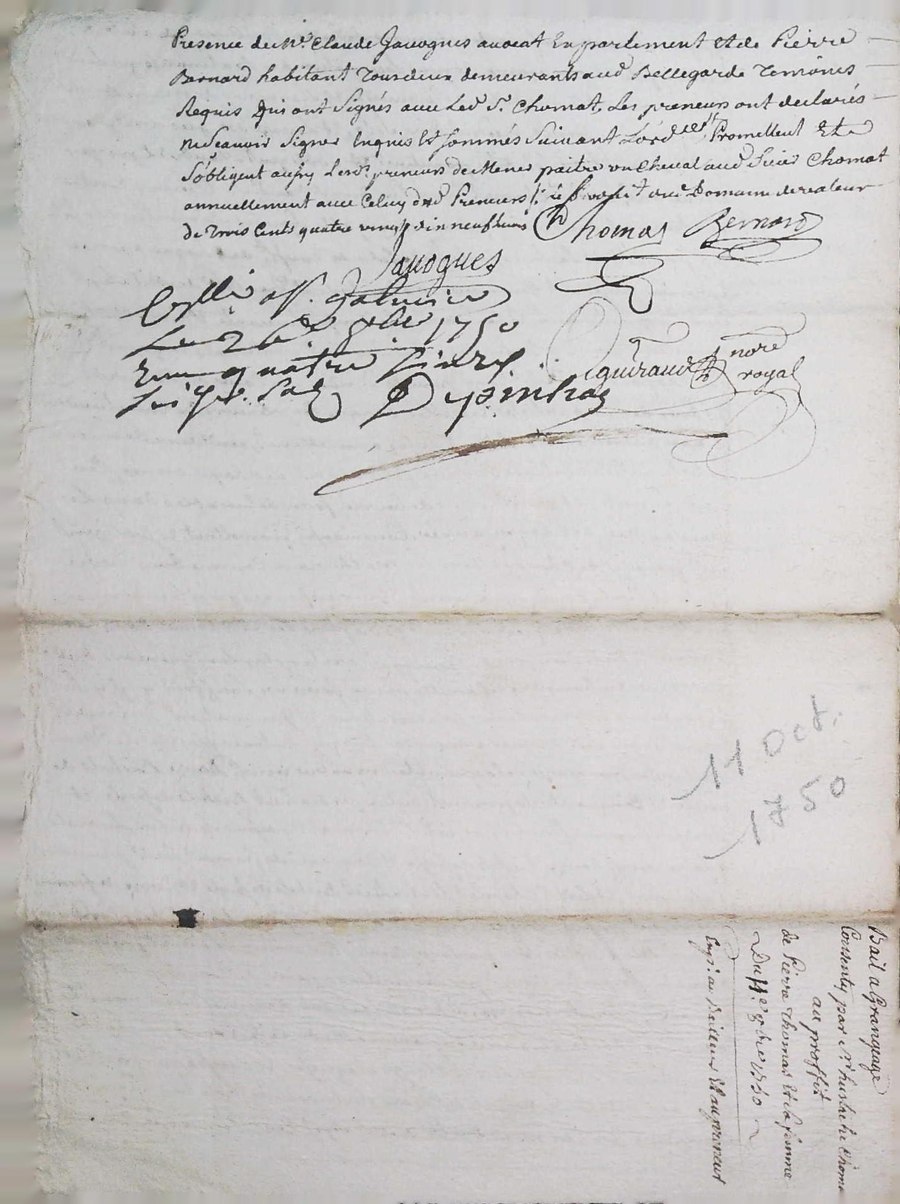 Presence de Mr. Claude Javognes avocat En parlement Et de Pierre
Bernard habitant demeurants aud Bellegarde Temoins
Requis Qui ont Signés avec Led Sr. Chomat, Les preneurs ont declarés
ne Scavoir Signer Enquis Et Sommés Suivant L'ord Promettent Et
S'obligent aussy Lesd. preneurs de Mener paitre un Cheval aud Sieur Chomat
annuellement avec Celuy desd Preneurs Domaine de valeur
de Trois Cents quatre vingt dix neuf livres Chomat Bernard
Javognes
Collé
Le 26 8bre 1750
quatre Livres
Dupinhac
Guiraud nore
royal
11 Oct.
1750
Bail a Grangeage
Consenty par Sr. Eustache Chomat
au proffit
de Pierre Thomas Et sa femme
Du 11e 8bre 1750
Exp. au Bailleur Et au preneur